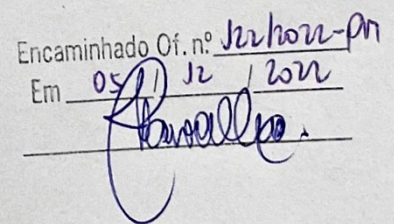 Encaminhado Of. n.º 122/2022-PM
Em 05 / 12 / 2022